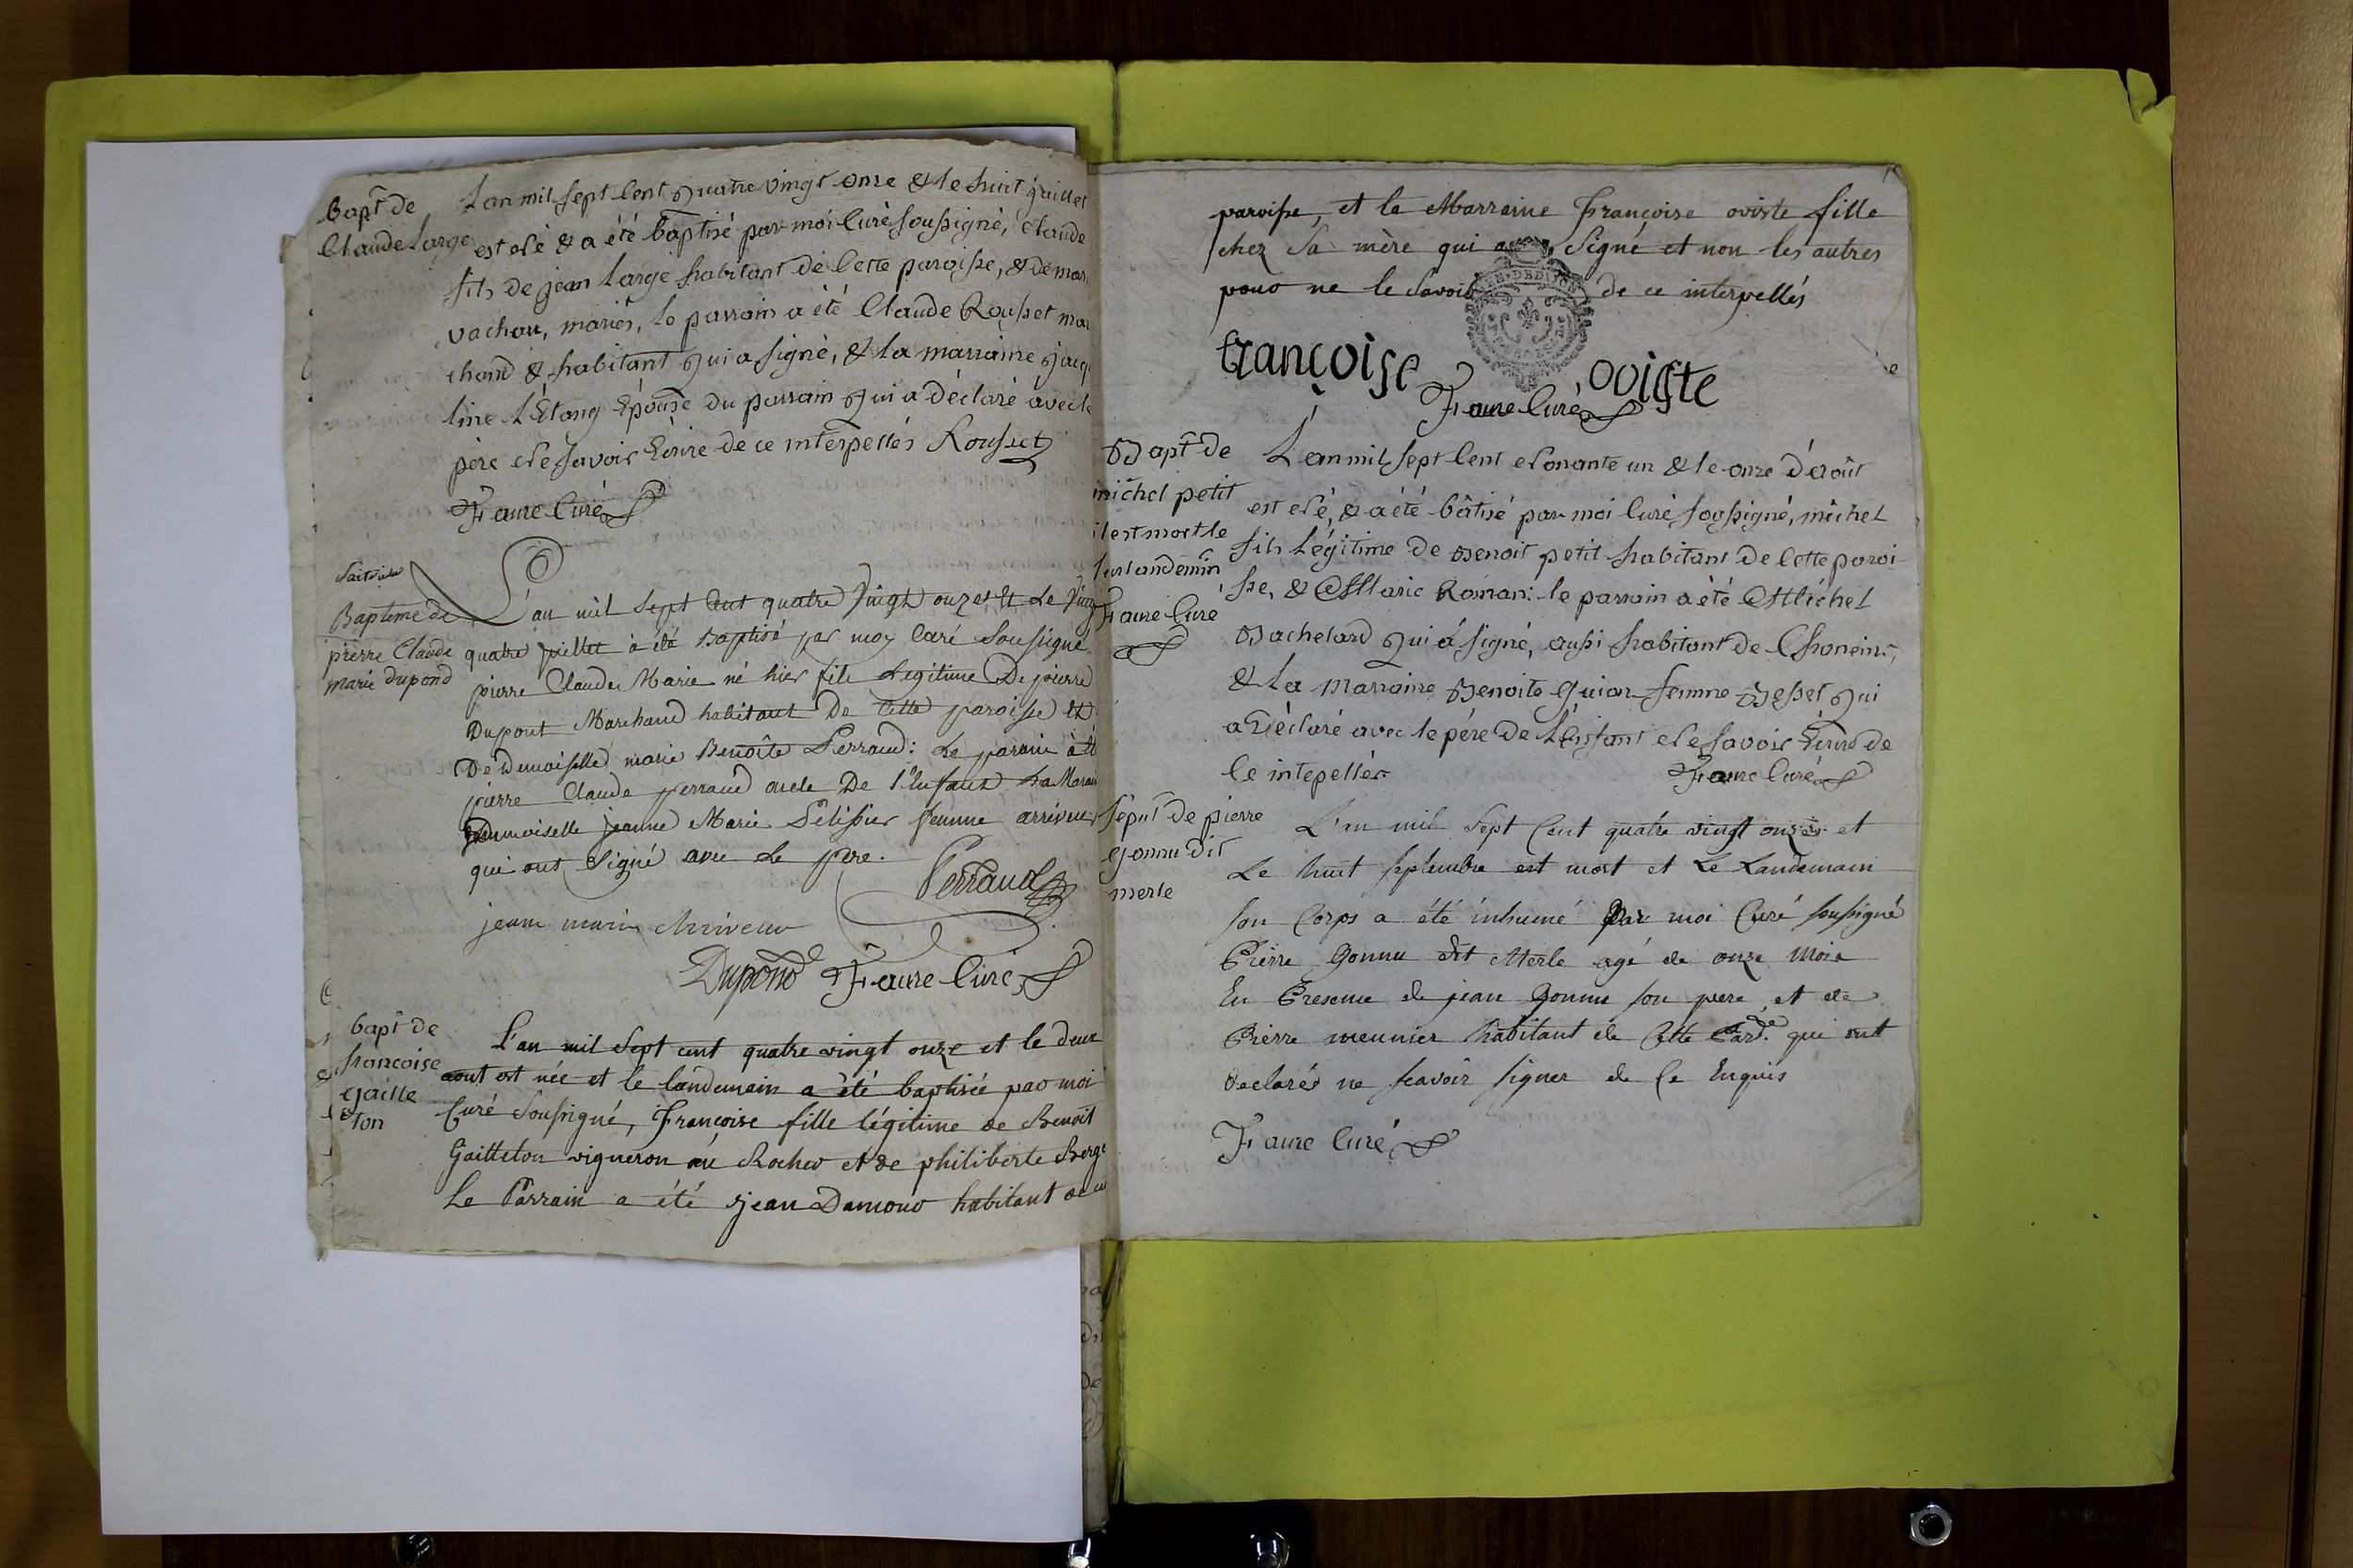 bapt de
Claude Large
L'an mil sept cent quatre vingt onze & le huit juillet
est né & a été baptisé par moi curé soussigné, Claude
fils de jean Large habitant de cette paroisse, & de mar
vachou, mariés, le parrain a été Claude Rousset mar
chand & habitant qui a signé, & la marraine jacq
line L'Étang Épouse du parrain qui a déclaré avec le
père ne savoir Écrire de ce interpellés Rousset
Faure Curé
Baptême de
pierre Claude
marie dupond
L'an mil sept Cent quatre Vingt onzes Et Le Ving
quatre juillet à été Baptisé par moy Curé Soussigné
pierre Claude Marie né hier fils Legitime De pierre
Dupont Marchand habitant De Cette paroisse Et
De Demoiselle marie Benoîte Perraud: Le parain à èt
pierre Claude perraud oncle De l'Enfant La Marai
Demoiselle jeanne Marie Pelissier femme arriveur
qui ont Signé avec Le Pere.
Perraud
jeane marie Arriveur
Dupond Faure Curé
bapt de
francoise
gaille
ton
L'an mil Sept cent quatre vingt onze et le deux
aout est née et le landemain a été baptisée par moi
Curé Soussigné, Françoise fille légitime de Benoit
Gailleton vigneron au Rocher et de philiberte Berge
Le Parrain a été Jean Damour habitant de ce
paroisse, et la Marraine Françoise oviste fille
chez Sa mère qui a Signé et non les autres
pour ne le Savoir de ce interpellés
françoise oviste
Faure Curé
Bapt de
michel petit
il est mort le
surlandemin
Faure Curé
L'an mil sept Cent nonante un & le onze d'août
est né, & a été bâtisé par moi Curé soussigné, michel
fils Légitime de Benoit petit habitant de Cette paroi
sse, & Marie Roman: le parrain a été Michel
Bachelard qui a signé, aussi habitant de Choneins,
& La Marraine Benoite guion femme Besset qui
a Déclaré avec le père de L'Enfant ne savoir Écrire de
Ce intepellés Faure Curé
sepul de pierre
gonnu dit
merle
L'an mil Sept Cent quatre vingt onzes et
Le huit septembre est mort et Le Landemain
son Corps a été inhumé Par moi Curé soussigné
Pierre Gonnu dit Merle agé de onze Mois
En Presence de jean Gonnu son pere et de
Pierre meunier habitant de Cette Par. qui ont
declarés ne scavoir signer de Ce Enquis
Faure Curé